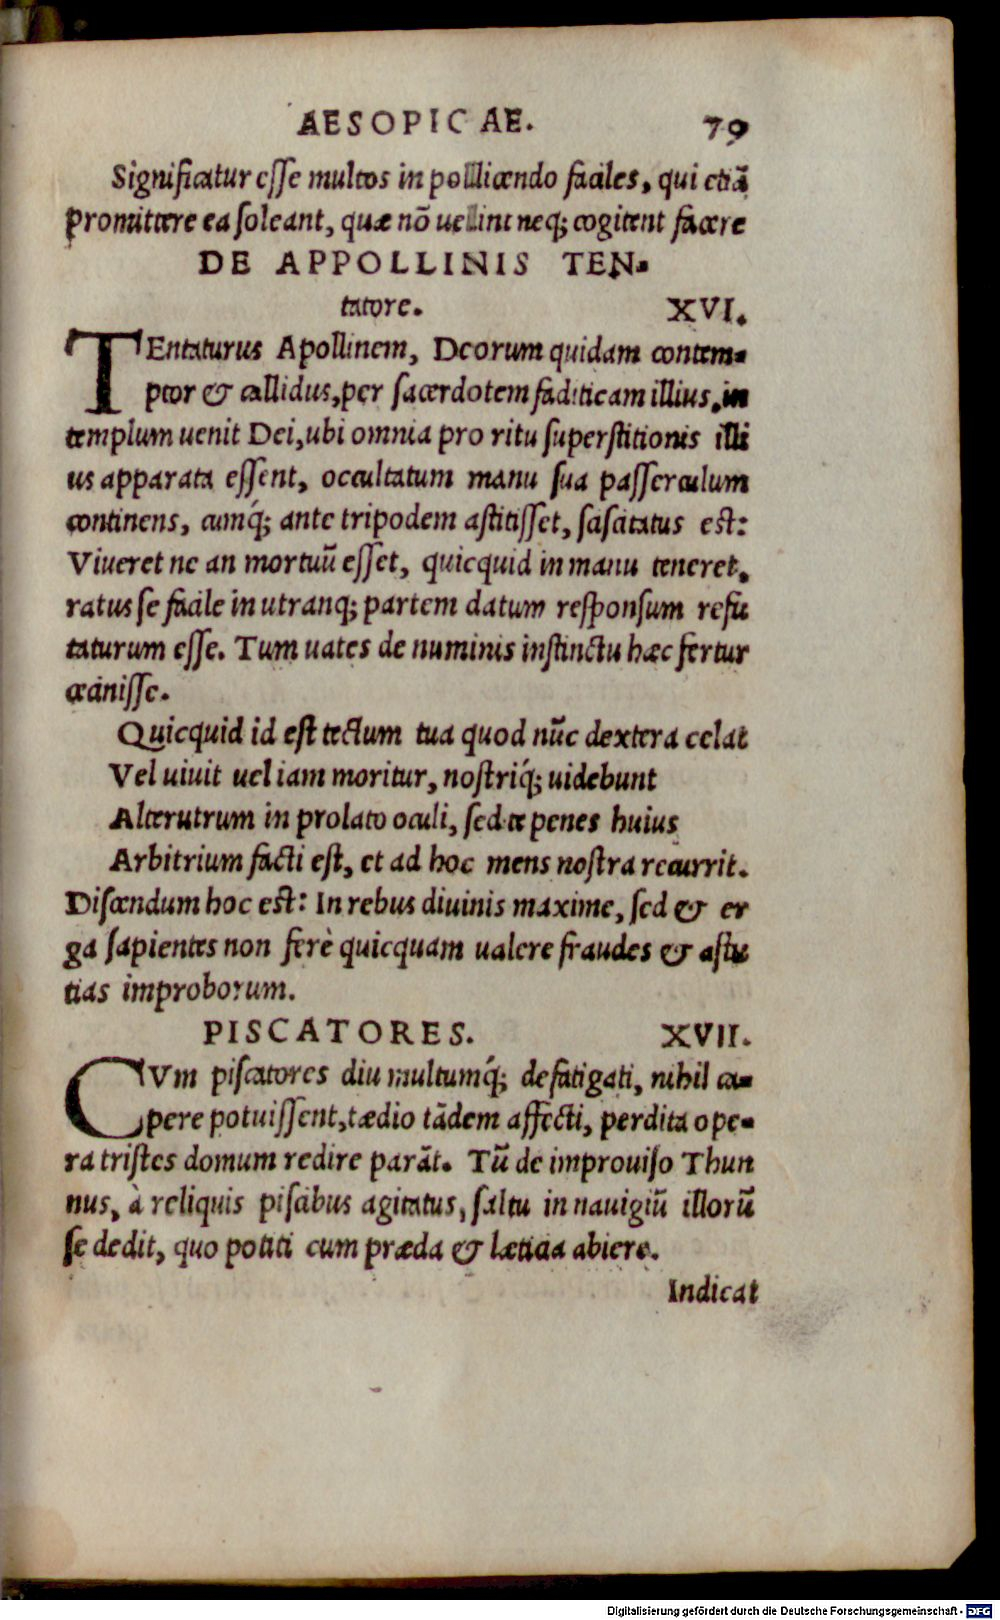 AESOPICAE. 79
Significatur esse multos in pollicendo faciles, qui etiã
promittere ea soleant, quæ nõ uelint neq; cogitent facere
DE APPOLLINIS TEN-
tatore. XVI.
TEntaturus Apollinem, Deorum quidam contem-
ptor & callidus, per sacerdotem fatidicam illius, in
templum uenit Dei, ubi omnia pro ritu superstitionis illi
us apparata essent, occultatum manu sua passerculum
continens, cumq́; ante tripodem astitisset, sascitatus est:
Viueret ne an mortuũ esset, quicquid in manu teneret,
ratus se facile in utranq; partem datum responsum refu
taturum esse. Tum uates de numinis instinctu hæc fertur
cecinisse.
Quicquid id est tectum tua quod nũc dextera celat
Vel uiuit uel iam moritur, nostriq́; uidebunt
Alterutrum in prolato oculi, sed te penes huius
Arbitrium facti est, et ad hoc mens nostra recurrit.
Discendum hoc est: In rebus diuinis maxime, sed & er
ga sapientes non ferè quicquam ualere fraudes & astu
tias improborum.
PISCATORES. XVII.
CVm piscatores diu multumq́; defatigati, nihil ca-
pere potuissent, tædio tãdem affecti, perdita ope-
ra tristes domum redire parãt. Tũ de improuiso Thun
nus, à reliquis piscibus agitatus, saltu in nauigiũ illorũ
se dedit, quo potiti cum præda & lætitia abiere.
Indicat
Digitalisierung gefördert durch die Deutsche Forschungsgemeinschaft - DFG